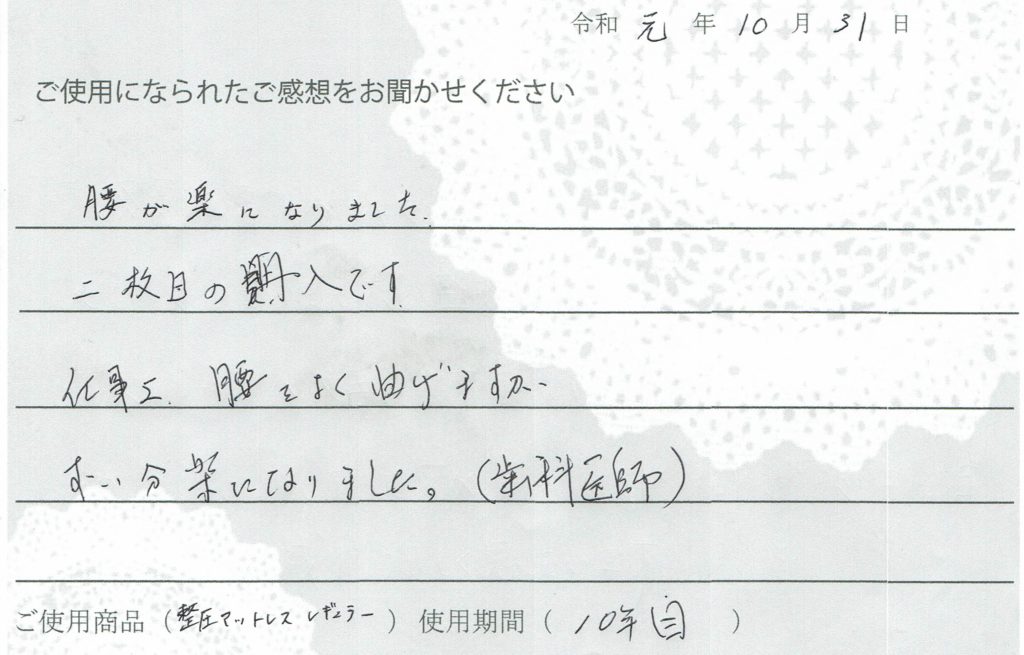 令和 元 年 10 月 31 日
ご使用になられたご感想をお聞かせください
腰が楽になりました.
二枚目の購入です
仕事上、腰をよく曲げますが、
ずい分楽になりました。(歯科医師)
ご使用商品(整圧マットレス レギュラー)使用期間(10年目)